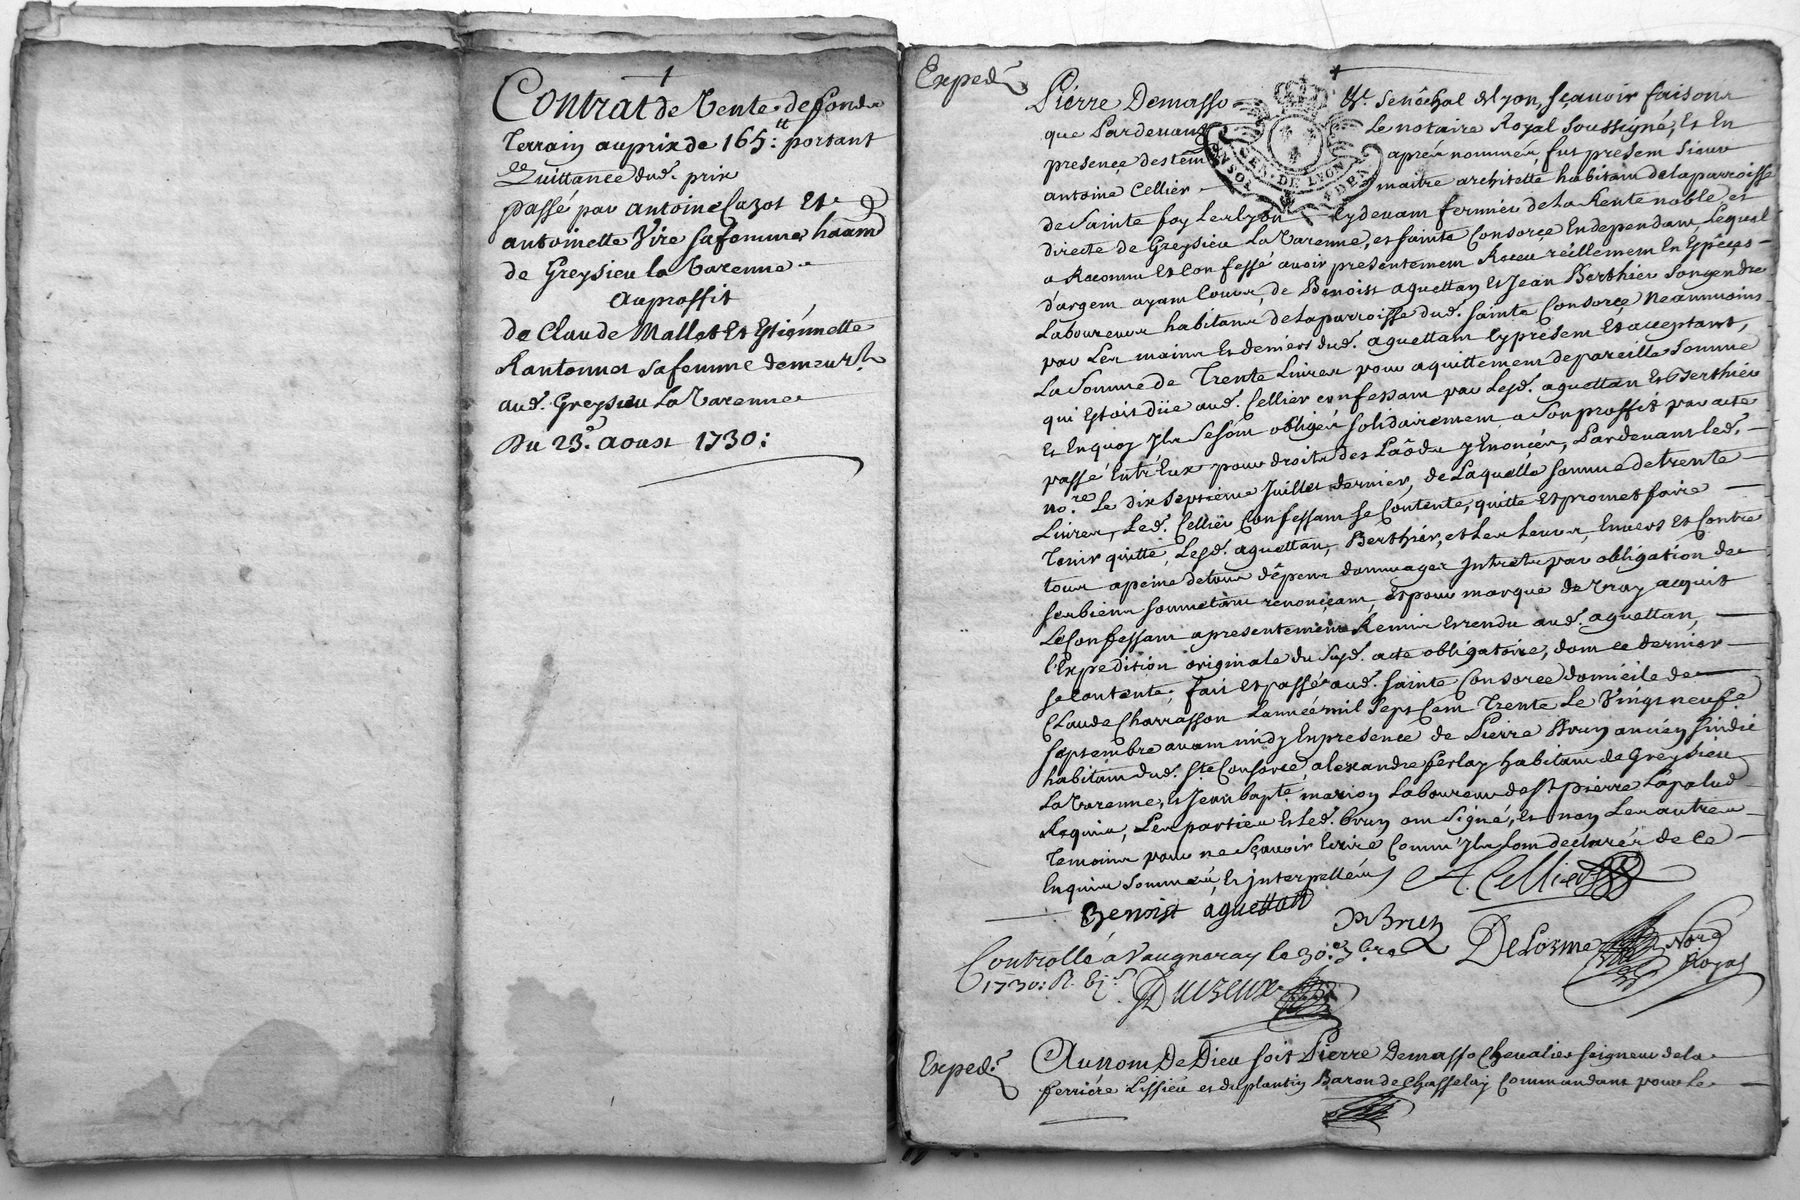 Contrat de Vente de fonds
Terrain au prix de 165:tt portant
Quittance dud. prix
passé par antoine Cazot Et
antoinette Vire sa femme habitant
de Greysieu la Varenne
Au proffit
de Claude Mallet Et Estiennette
Rantonnet sa femme demeurts
aud. Greysieu La Varenne
Du 23e. aoust 1730:
Exped.
Pierre Demasso Sénéchal de Lyon, sçavoir faisons
que Pardevant Le notaire Royal soussigné, Et En
presence des tem aprés nommés, fut présent sieur
antoine Cellier maitre architette habitant de la parroisse
de Sainte foy Les Lyon Cy devant fermier de La Rente noble et
directe de Greysieu La Varenne, et Sainte Consorce En dependant, Lequel
a Reconnu Et Confessé avoir presentement Receu réellement En Espèces
d'argent ayant Cours, de Benoist aguettan Et Jean Berthier Son gendre
Laboureurs habitans de La parroisse dud. Sainte Consorce Neanmoins
par Les mains Et deniers dud. aguettant Cy présent Et acceptant,
La Somme de Trente Livres pour aquittement de pareille Somme
qui Estoit düe aud. Cellier confessant par Lesd. aguettan Et Berthier
Et En quoy Ils Se sont obligés solidairement a Son proffit par acte
passé Entr'Eux pour droits des Laods y Enoncés, Pardevant led.
nore. Le dix septieme Juillet dernier, de Laquelle somme de trente
Livres, Led. Cellier Confessant Se Contente, quitte Et promet faire
Tenir quitte, Lesd. aguettan, Berthier, et Les Leurs, Envers Et Contre
tous a peine de tous dépens dommages Intrets par obligation de
ses biens soumetant renonçant, Et pour marque de Vray acquit
Le Confessant a presentement Remis Et rendu aud. aguettan,
l'Expedition originale du susd. acte obligatoire, dont ce dernier
se contente, fait et passé aud. Sainte Consorce domicile de
Claude Charrasson L'année mil Sept Cent Trente Le Vingt neufe
septembre avant midy En presence de Pierre Brun ancien sindic
habitant dud. Ste Consorce, alexandre ferlay habitant de Greysieu
La Varenne, Et Jean bapte. marion Laboureur de St. pierre Lapalud
Requis, Les parties Et Led. brun ont Signé, Et non Les autres
Temoins pour ne sçavoir Ecrire Comm'ils l'ont declarés de ce
Enquis Sommés, Et interpellés
A. Cellier
Benoist aguettan
P Brun
DeLorme Nore Royal
Controllé à Vaugneray le 30e. 7bre
1730: R. 6s.
Duzeux
Exped.
Au nom De Dieu soit Pierre Demasso Chevalier seigneur de la
ferriére Lissieu et du plantin Baron de Chasselay Commandant pour Le